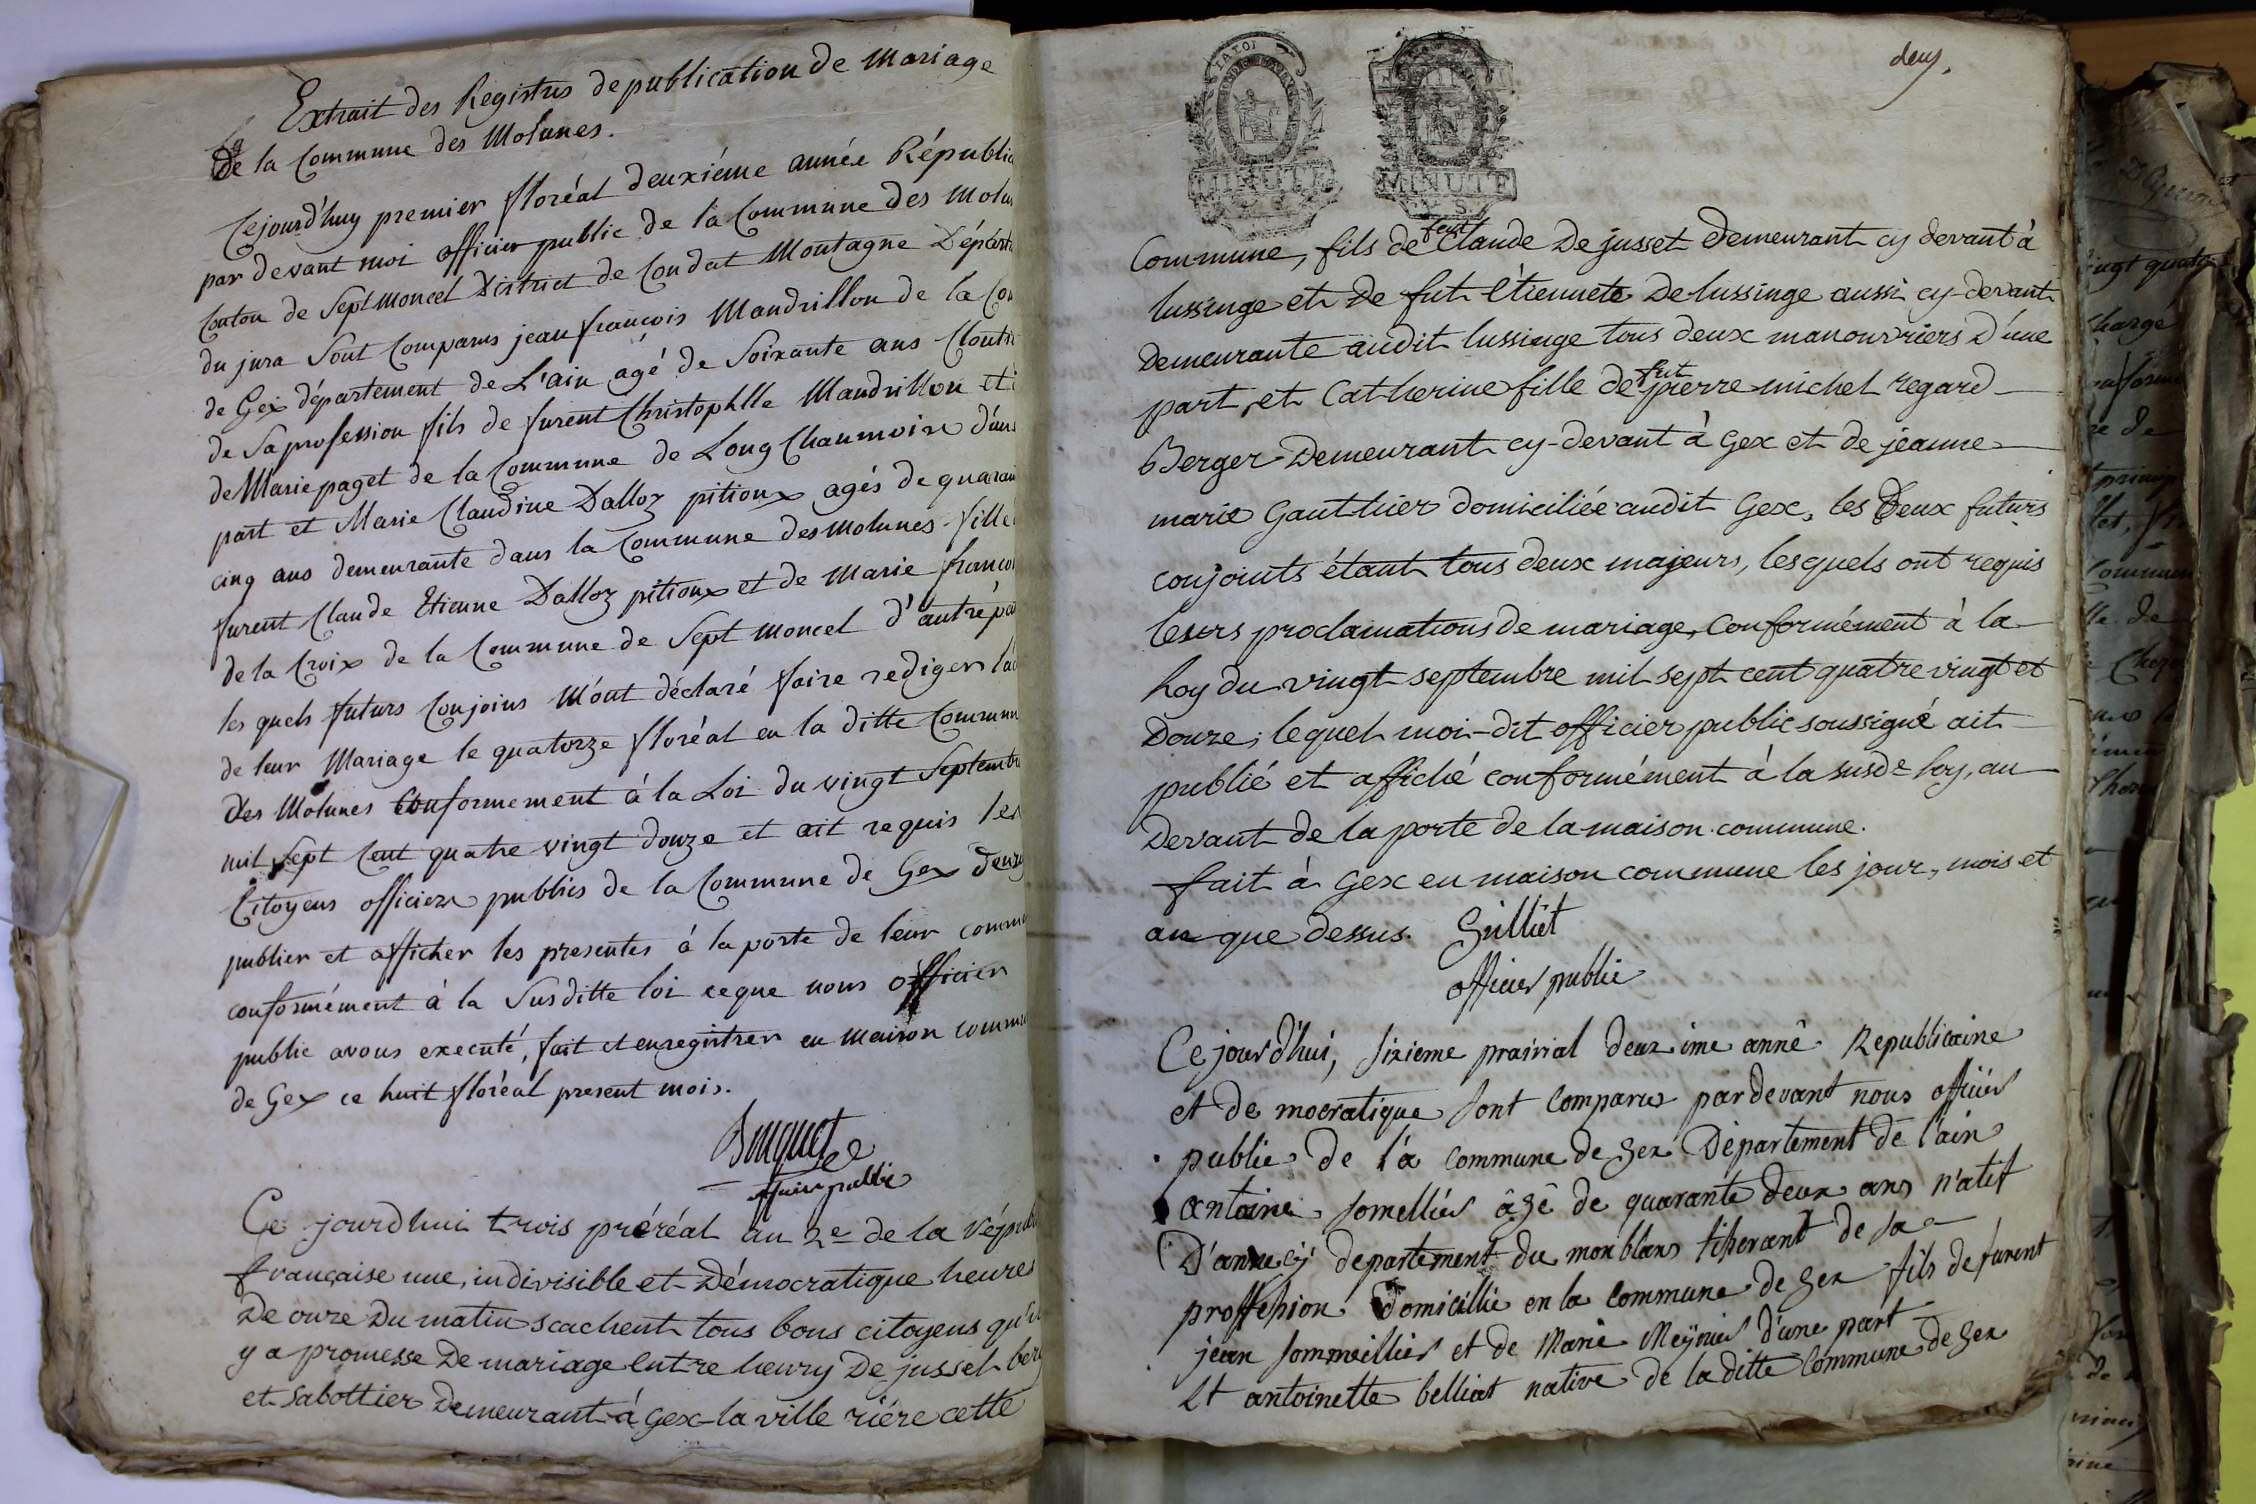 Extrait des Registres de publication de Mariage
De la Commune des Molunes.
Cejourd'huy premier floréal deuxiéme année Républic
par devant moi officier public de la Commune des Molun
Conton de Sept Moncel District de Condat Montagne Départ
du jura Sont Comparus jean françois Mandrillon de la Co
de Gex département de L'ain agé de Soixante ans Cloutr
de Sa profession fils de furent Christophlle Mandrillon et
de Marie paget de la Commune de Long Chaumoix d'une
part et Marie Claudine Dalloz pitioux agés de quaran
cinq ans demeurante dans la Commune des Molunes fille
furent Claude Etienne Dalloz pitioux et de Marie franco
de la Croix de la Commune de Sept Moncel d'autre pa
les quels futurs Conjoins M'ont déclaré faire rediger l'a
de leur Mariage le quatorze floréal en la ditte Commun
des Molunes Conformement à la Loi du vingt Septemb
mil Sept Cent quatre vingt douze et ait requis les
Citoyens officiers publics de la Commune de Gex d'en
publier et afficher les presentes à la porte de leur comm
conformément à la Susditte loi ce que nous officier
public avons executé, fait et enregistrer en maison commu
de Gex ce huit floréal present mois.
officier public
Ce jourdhui trois préréal an 2e de la répub
française une, indivisible et Démocratique heures
De onze Du matin scachent tous bons citoyens qu'il
y a promesse De mariage Entre henry De jusset ber
et Sabottier Demeurant à Gex la ville riére cette
deux.
MINUTE
MINUTE
Commune, fils de feut Claude De jusset Demeurant cy devant à
lussinge et De fut Etiennete De lussinge aussi cy-devant
Demeurante audit lussinge tous deux manouvriers D'une
part, et Catherine fille de fut pierre michel regard
Berger Demeurant cy-devant à Gex et de jeanne
marie Gauthier domiciliée audit Gex, les Deux futurs
conjoints étant tous deux majeurs, lesquels ont requis
leurs proclamations de mariage, Conformément à la
Loy du vingt septembre mil sept cent quatre vingt et
Douze; lequel moi-dit officier public soussigné ait
publié et affiché conformément à la susde loy, au
Devant de la porte de la maison commune.
fait à Gex en maison commune les jour, mois et
an que dessus. Guilliet
officier public
Ce jourd'hui, Sixieme prairial deuxime anné Republicaine
et de mocratique Sont Comparus pardevant nous officier
public de la commune de Gex Département de l'ain
antoine Somellier âgé de quarante deux ans n'atif
D'annecy departement du monblans tiserant de Sa
proffesion Domicillié en la commune de Gex fils de furent
jean Sommeillier et de Marie Meynier d'une part
Et antoinette belliat native de la ditte Commune de Gex